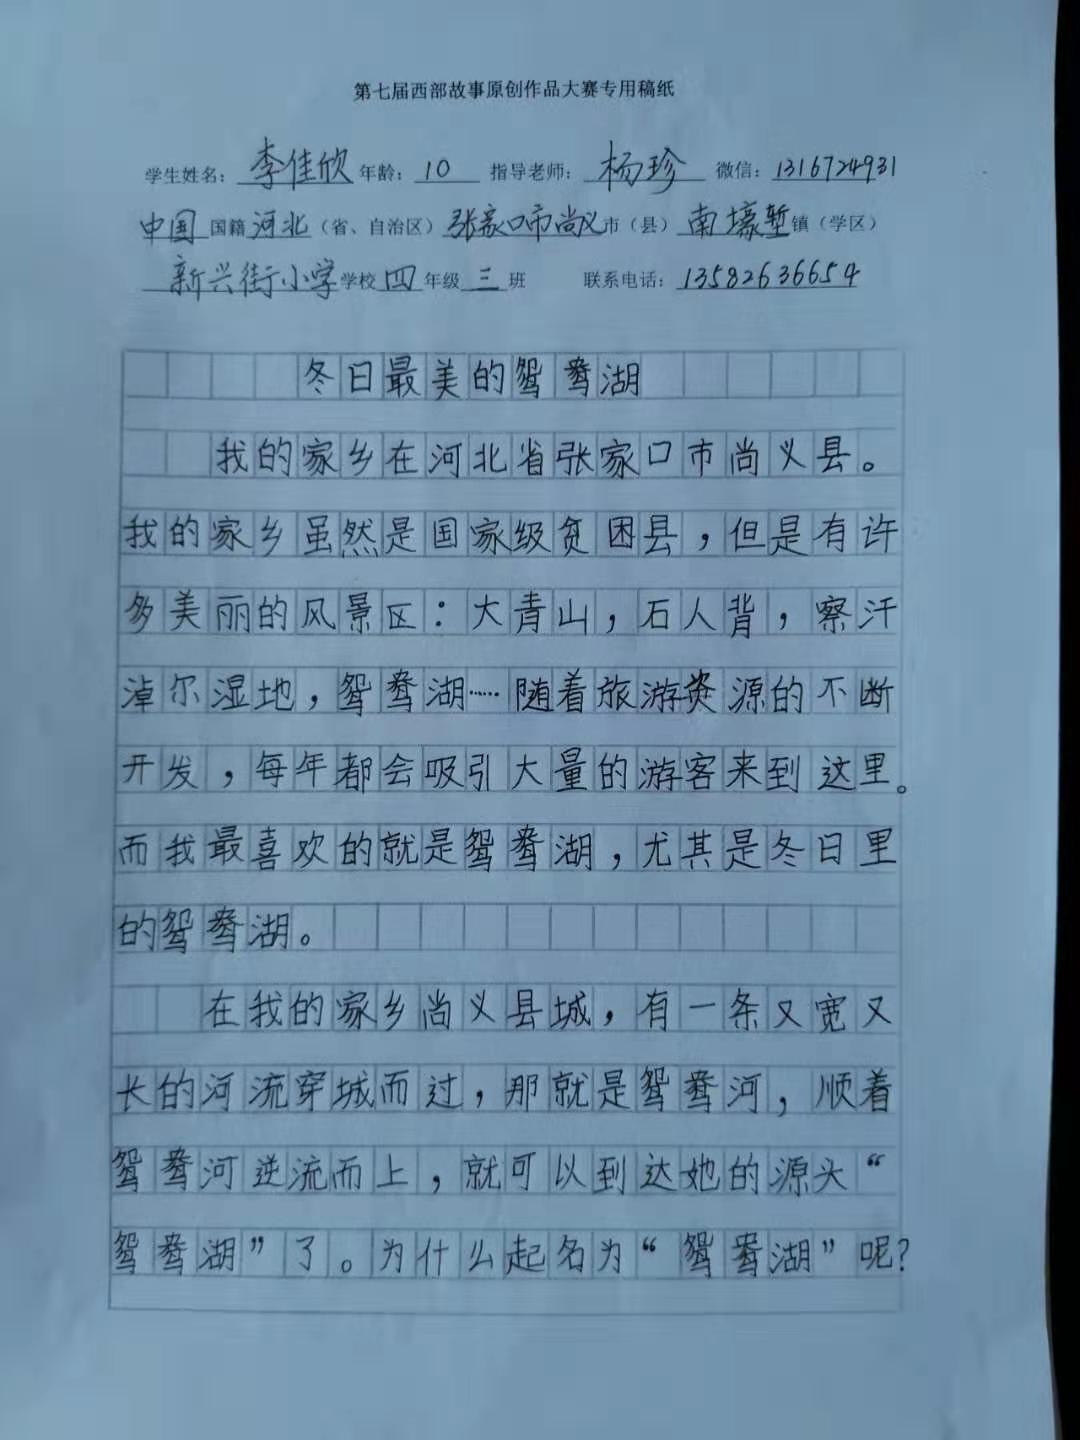 第七届西部故事原创作品大赛专用稿纸
学生姓名：李佳欣 年龄：10 指导老师：杨珍 微信：1316724931
中国国籍河北（省、自治区）张家口市尚义市（县）南壕堑镇（学区）
新兴街小学学校四年级三班 联系电话：13582636654
冬日最美的鸳鸯湖
我的家乡在河北省张家口市尚义县。
我的家乡虽然是国家级贫困县，但是有许
多美丽的风景区：大青山，石人背，察汗
淖尔湿地，鸳鸯湖……随着旅游资源的不断
开发，每年都会吸引大量的游客来到这里。
而我最喜欢的就是鸳鸯湖，尤其是冬日里
的鸳鸯湖。
在我的家乡尚义县城，有一条又宽又
长的河流穿城而过，那就是鸳鸯河，顺着
鸳鸯河逆流而上，就可以到达她的源头“
鸳鸯湖”了。为什么起名为“鸳鸯湖”呢？